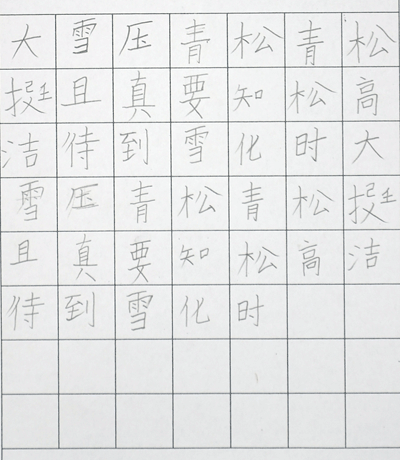 大雪压青松青松
挺且真要知松高
洁待到雪化时大
雪压青松青松挺
且真要知松高洁
待到雪化时